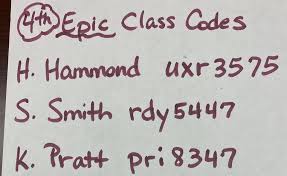 4th Epic Class Codes
H. Hammond uxr3575
S. Smith rdy5447
K. Pratt pri8347